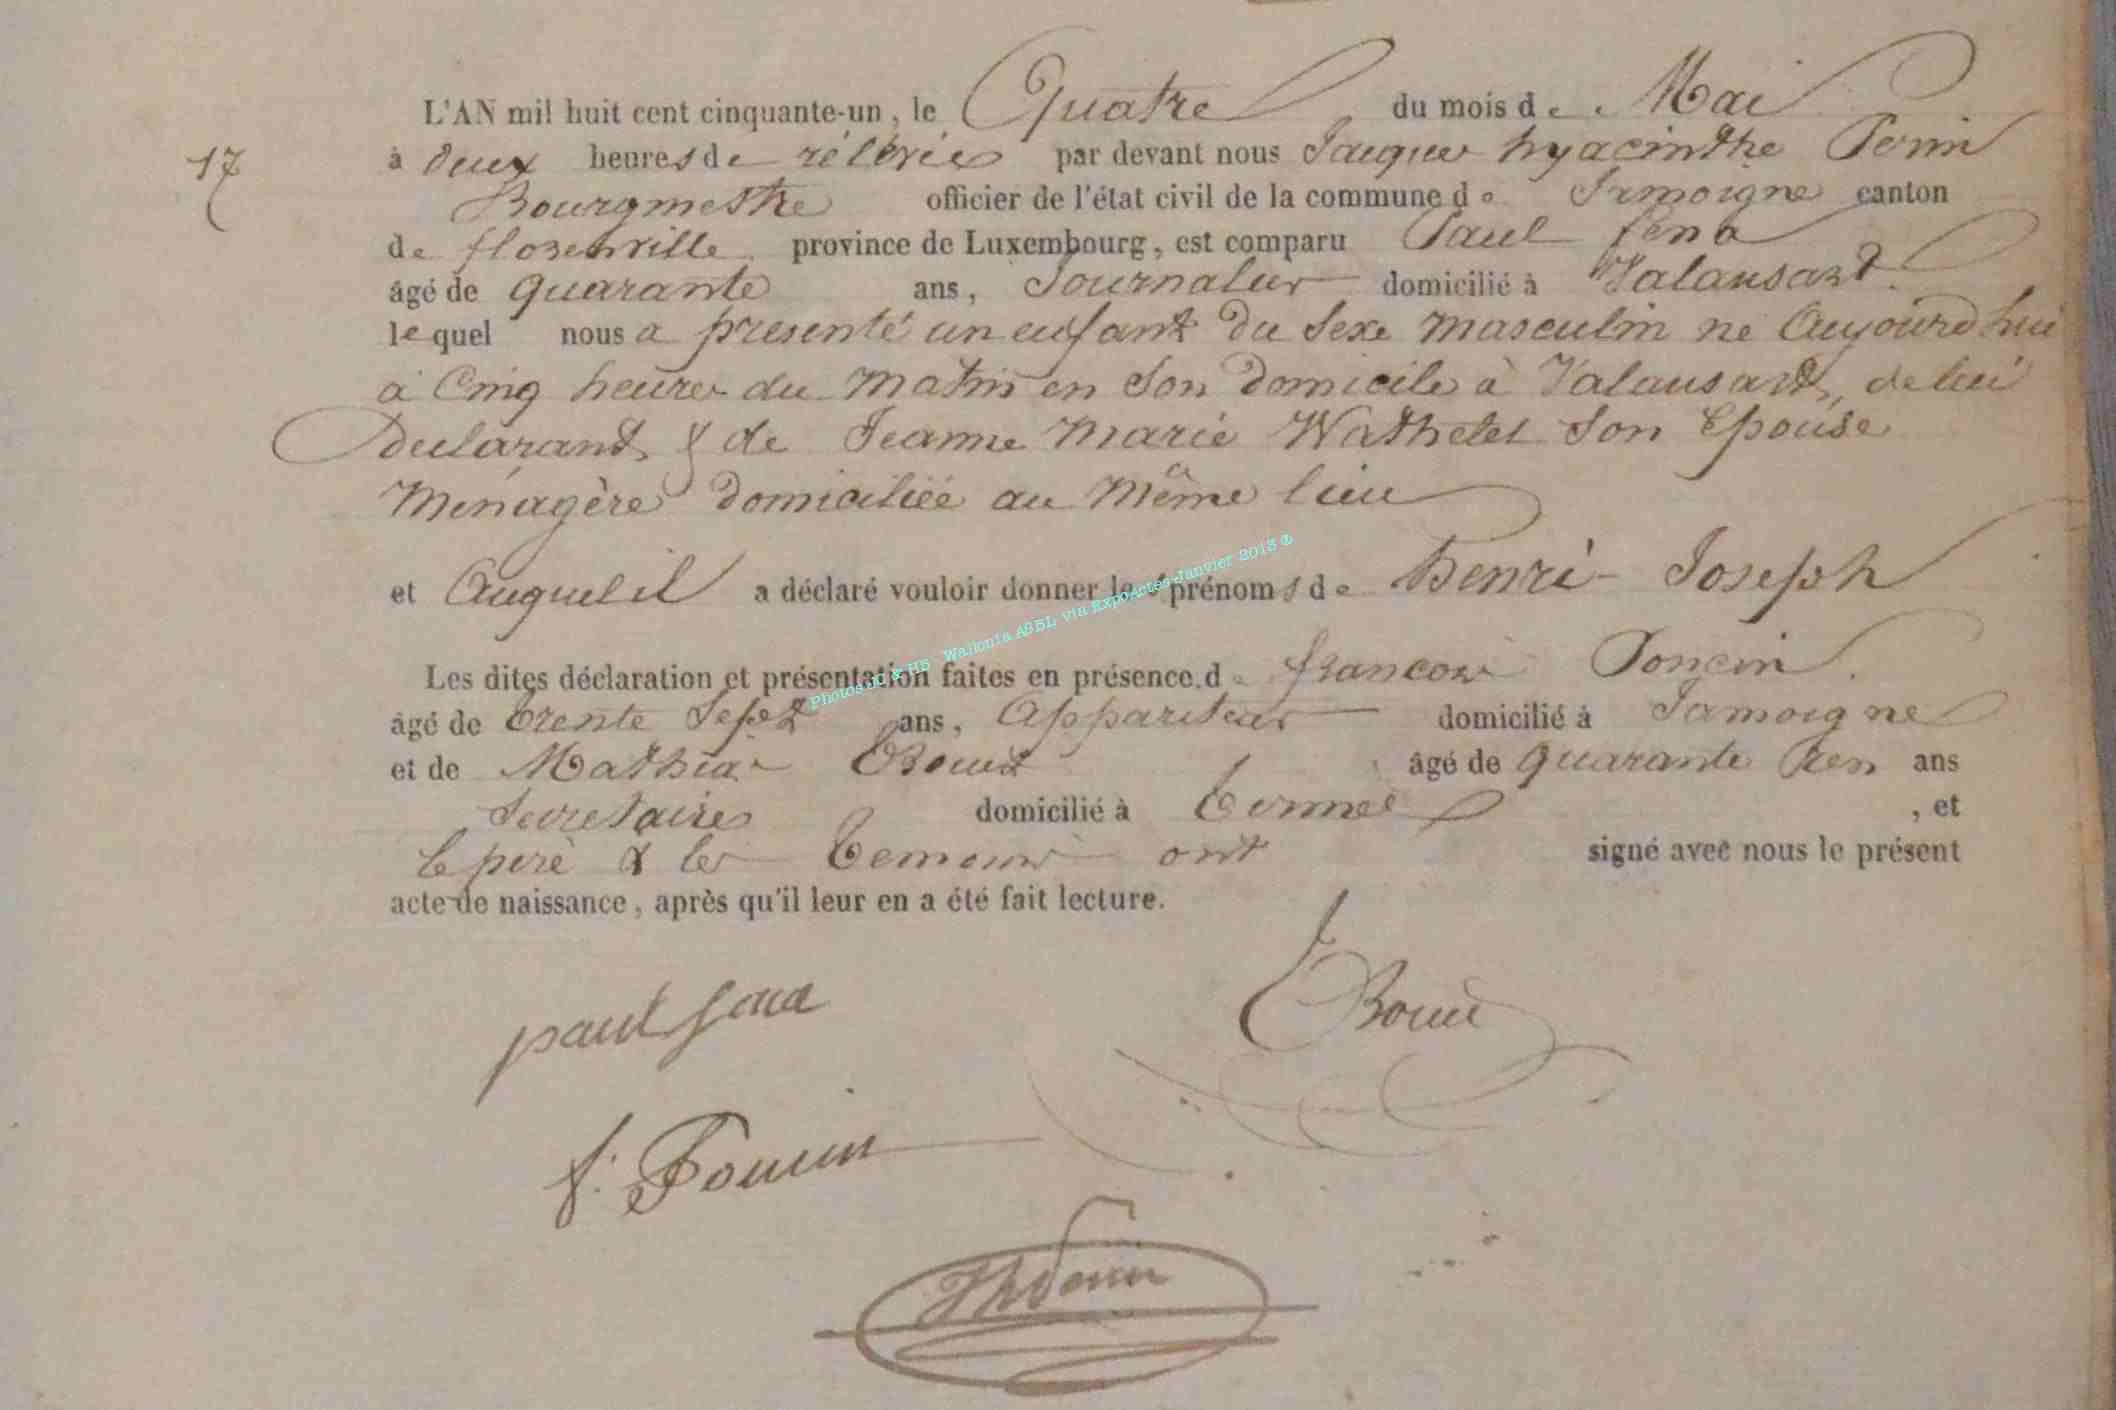 L'AN mil huit cent cinquante-un, le Quatre du mois de Mai
17
à deux heures de rélévée par devant nous Jacques hyacinthe Perin
Bourgmestre officier de l'état civil de la commune de Jamoigne canton
de florenville province de Luxembourg, est comparu Paul fena
âgé de quarante ans, Journalier domicilié à Valansart.
lequel nous a presenté un enfant du Sexe masculin né Aujourdhui
à Cinq heures du matin en Son domicile à Valansart, de lui
Déclarant & de Jeanne Marie Wathelet Son Epouse
Ménagère domiciliée au Même lieu
et Auquel il a déclaré vouloir donner les prénoms de Henri Joseph
Photos JC & HS Wallonia ASBL via ExpoActes-Janvier 2015 ®
Les dites déclaration et présentation faites en présence de francois Poncin.
âgé de trente Sept ans, Appariteur domicilié à Jamoigne
et de Mathias âgé de quarante ans
Secretaire domicilié à termes , et
le père & les temoins ont signé avec nous le présent
acte de naissance, après qu'il leur en a été fait lecture.
paul fena
f. Poncin